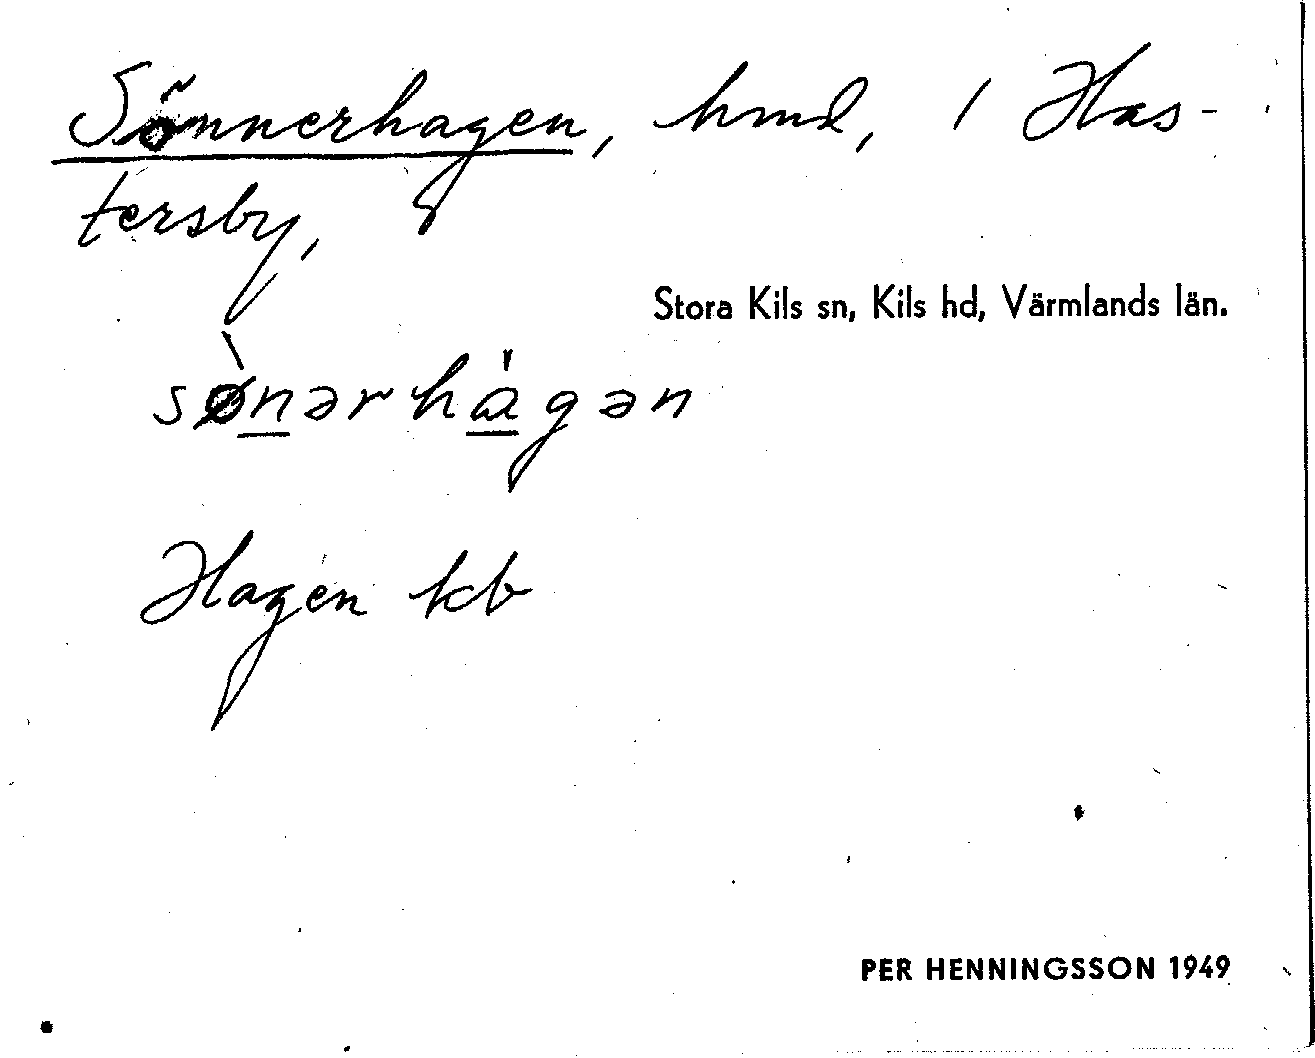 Sönnerhagen, hmd, i Has-
tersby,
Stora Kils sn, Kils hd, Värmlands län.
sø̀nərhágən
Hagen kb
PER HENNINGSSON 1949